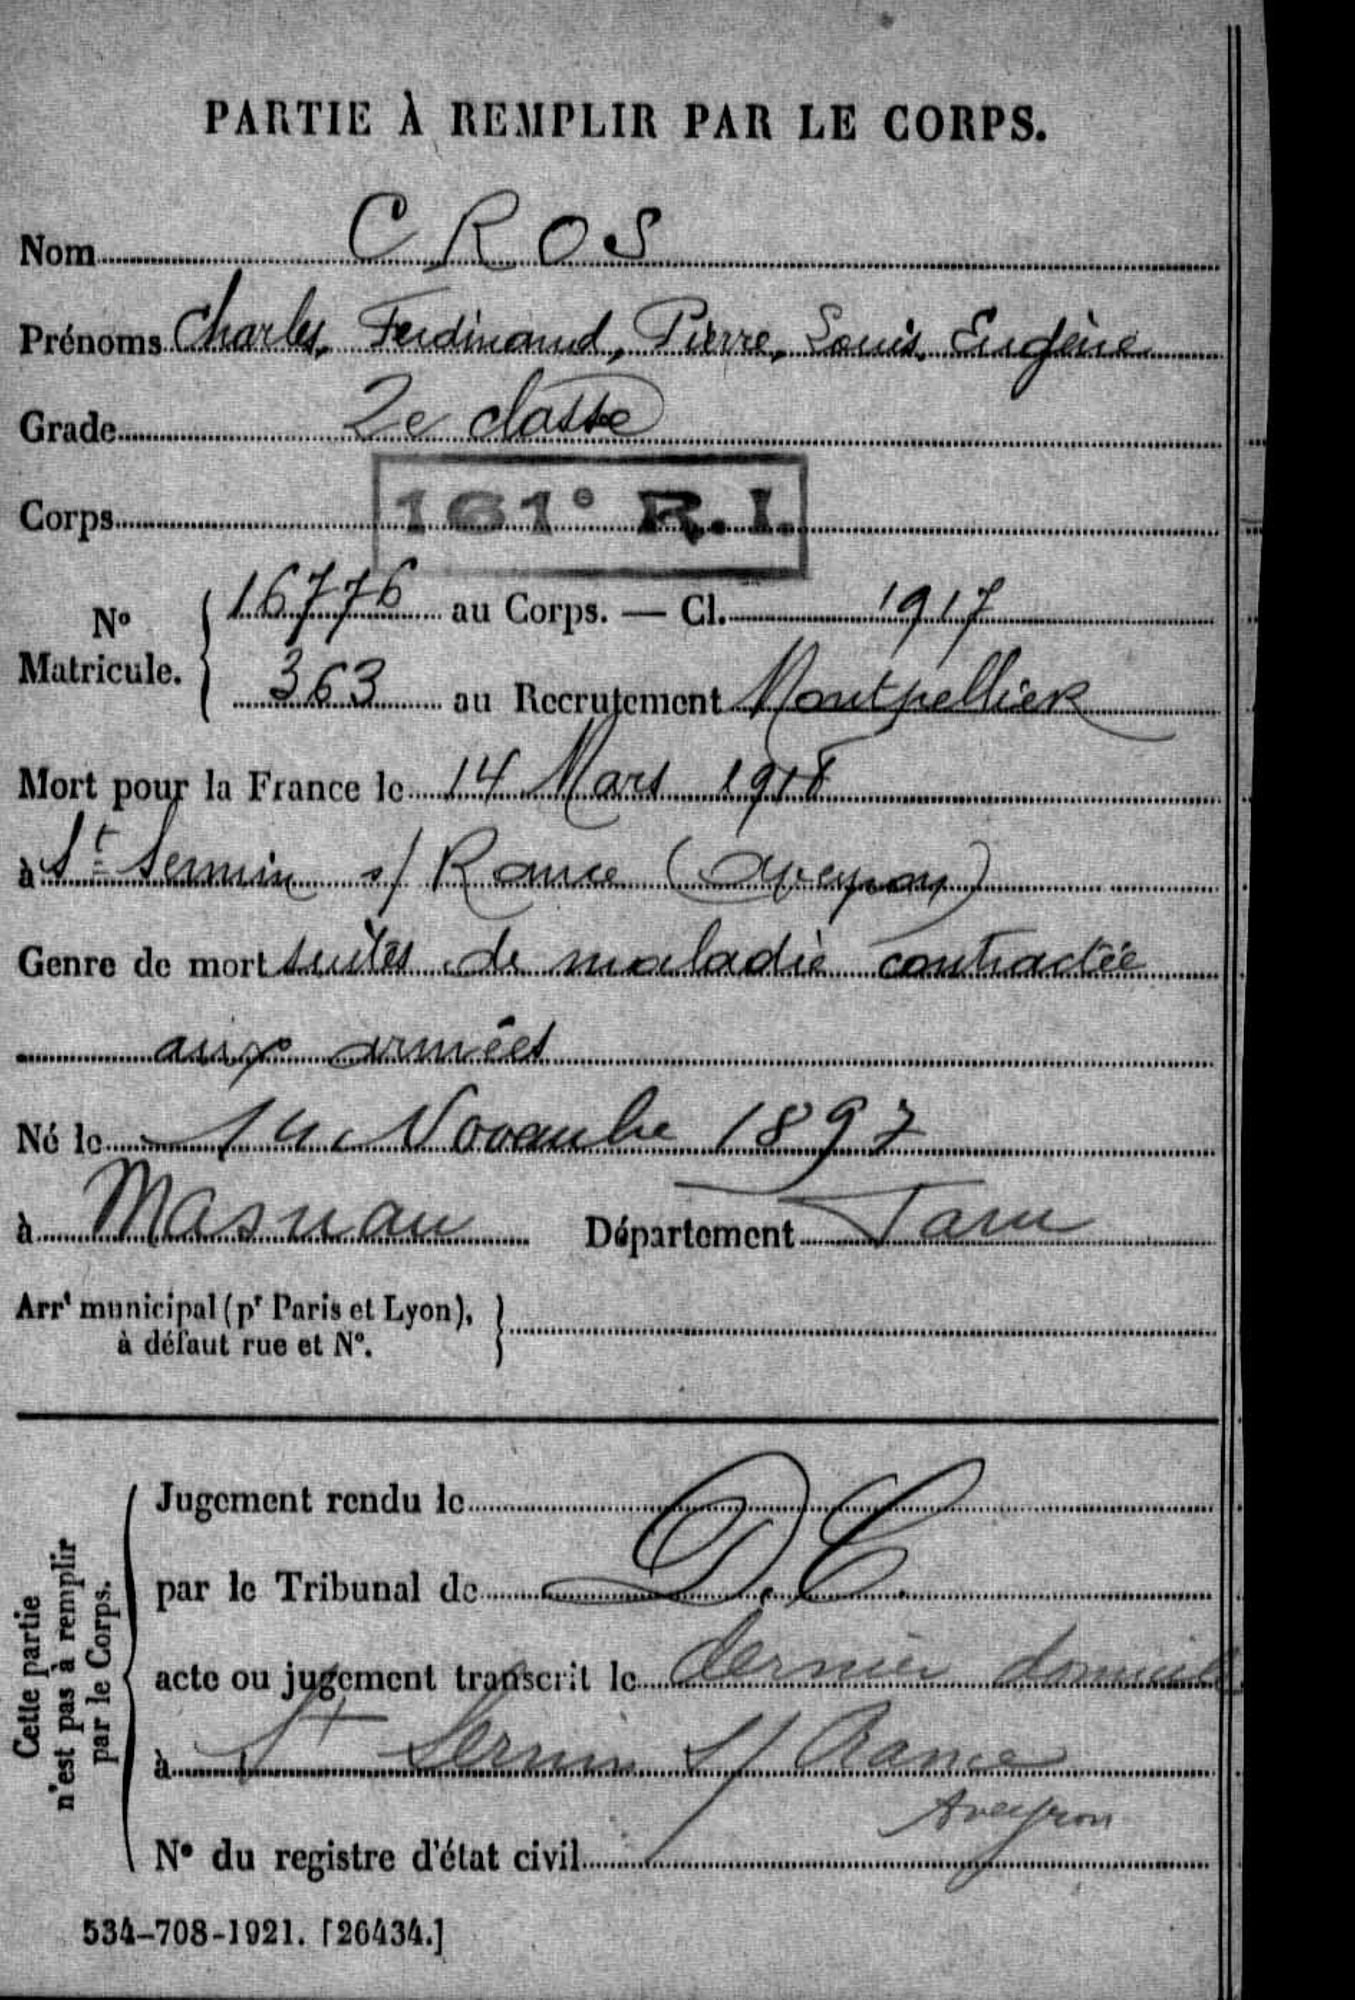 PARTIE À REMPLIR PAR LE CORPS.
Nom CROS
Prénoms Charles, Ferdinand, Pierre, Louis, Eugène
Grade 2e classe
Corps 161e R.I.
No Matricule. 16776 au Corps. — Cl. 1917
363 au Recrutement Montpellier
Mort pour la France le 14 Mars 1918
à St Sernin s/ Rance (Aveyron)
Genre de mort suites de maladie contractée
aux armées
Né le 14 Novembre 1897
à Masnau Département Tarn
Arrt municipal (pr Paris et Lyon),
à défaut rue et No.
Cette partie
n'est pas à remplir
par le Corps.
Jugement rendu le
par le Tribunal de D.C.
acte ou jugement transcrit le dernier domicile
à St Sernin s/ Rance
Aveyron
No du registre d'état civil
534-708-1921. [26434.]